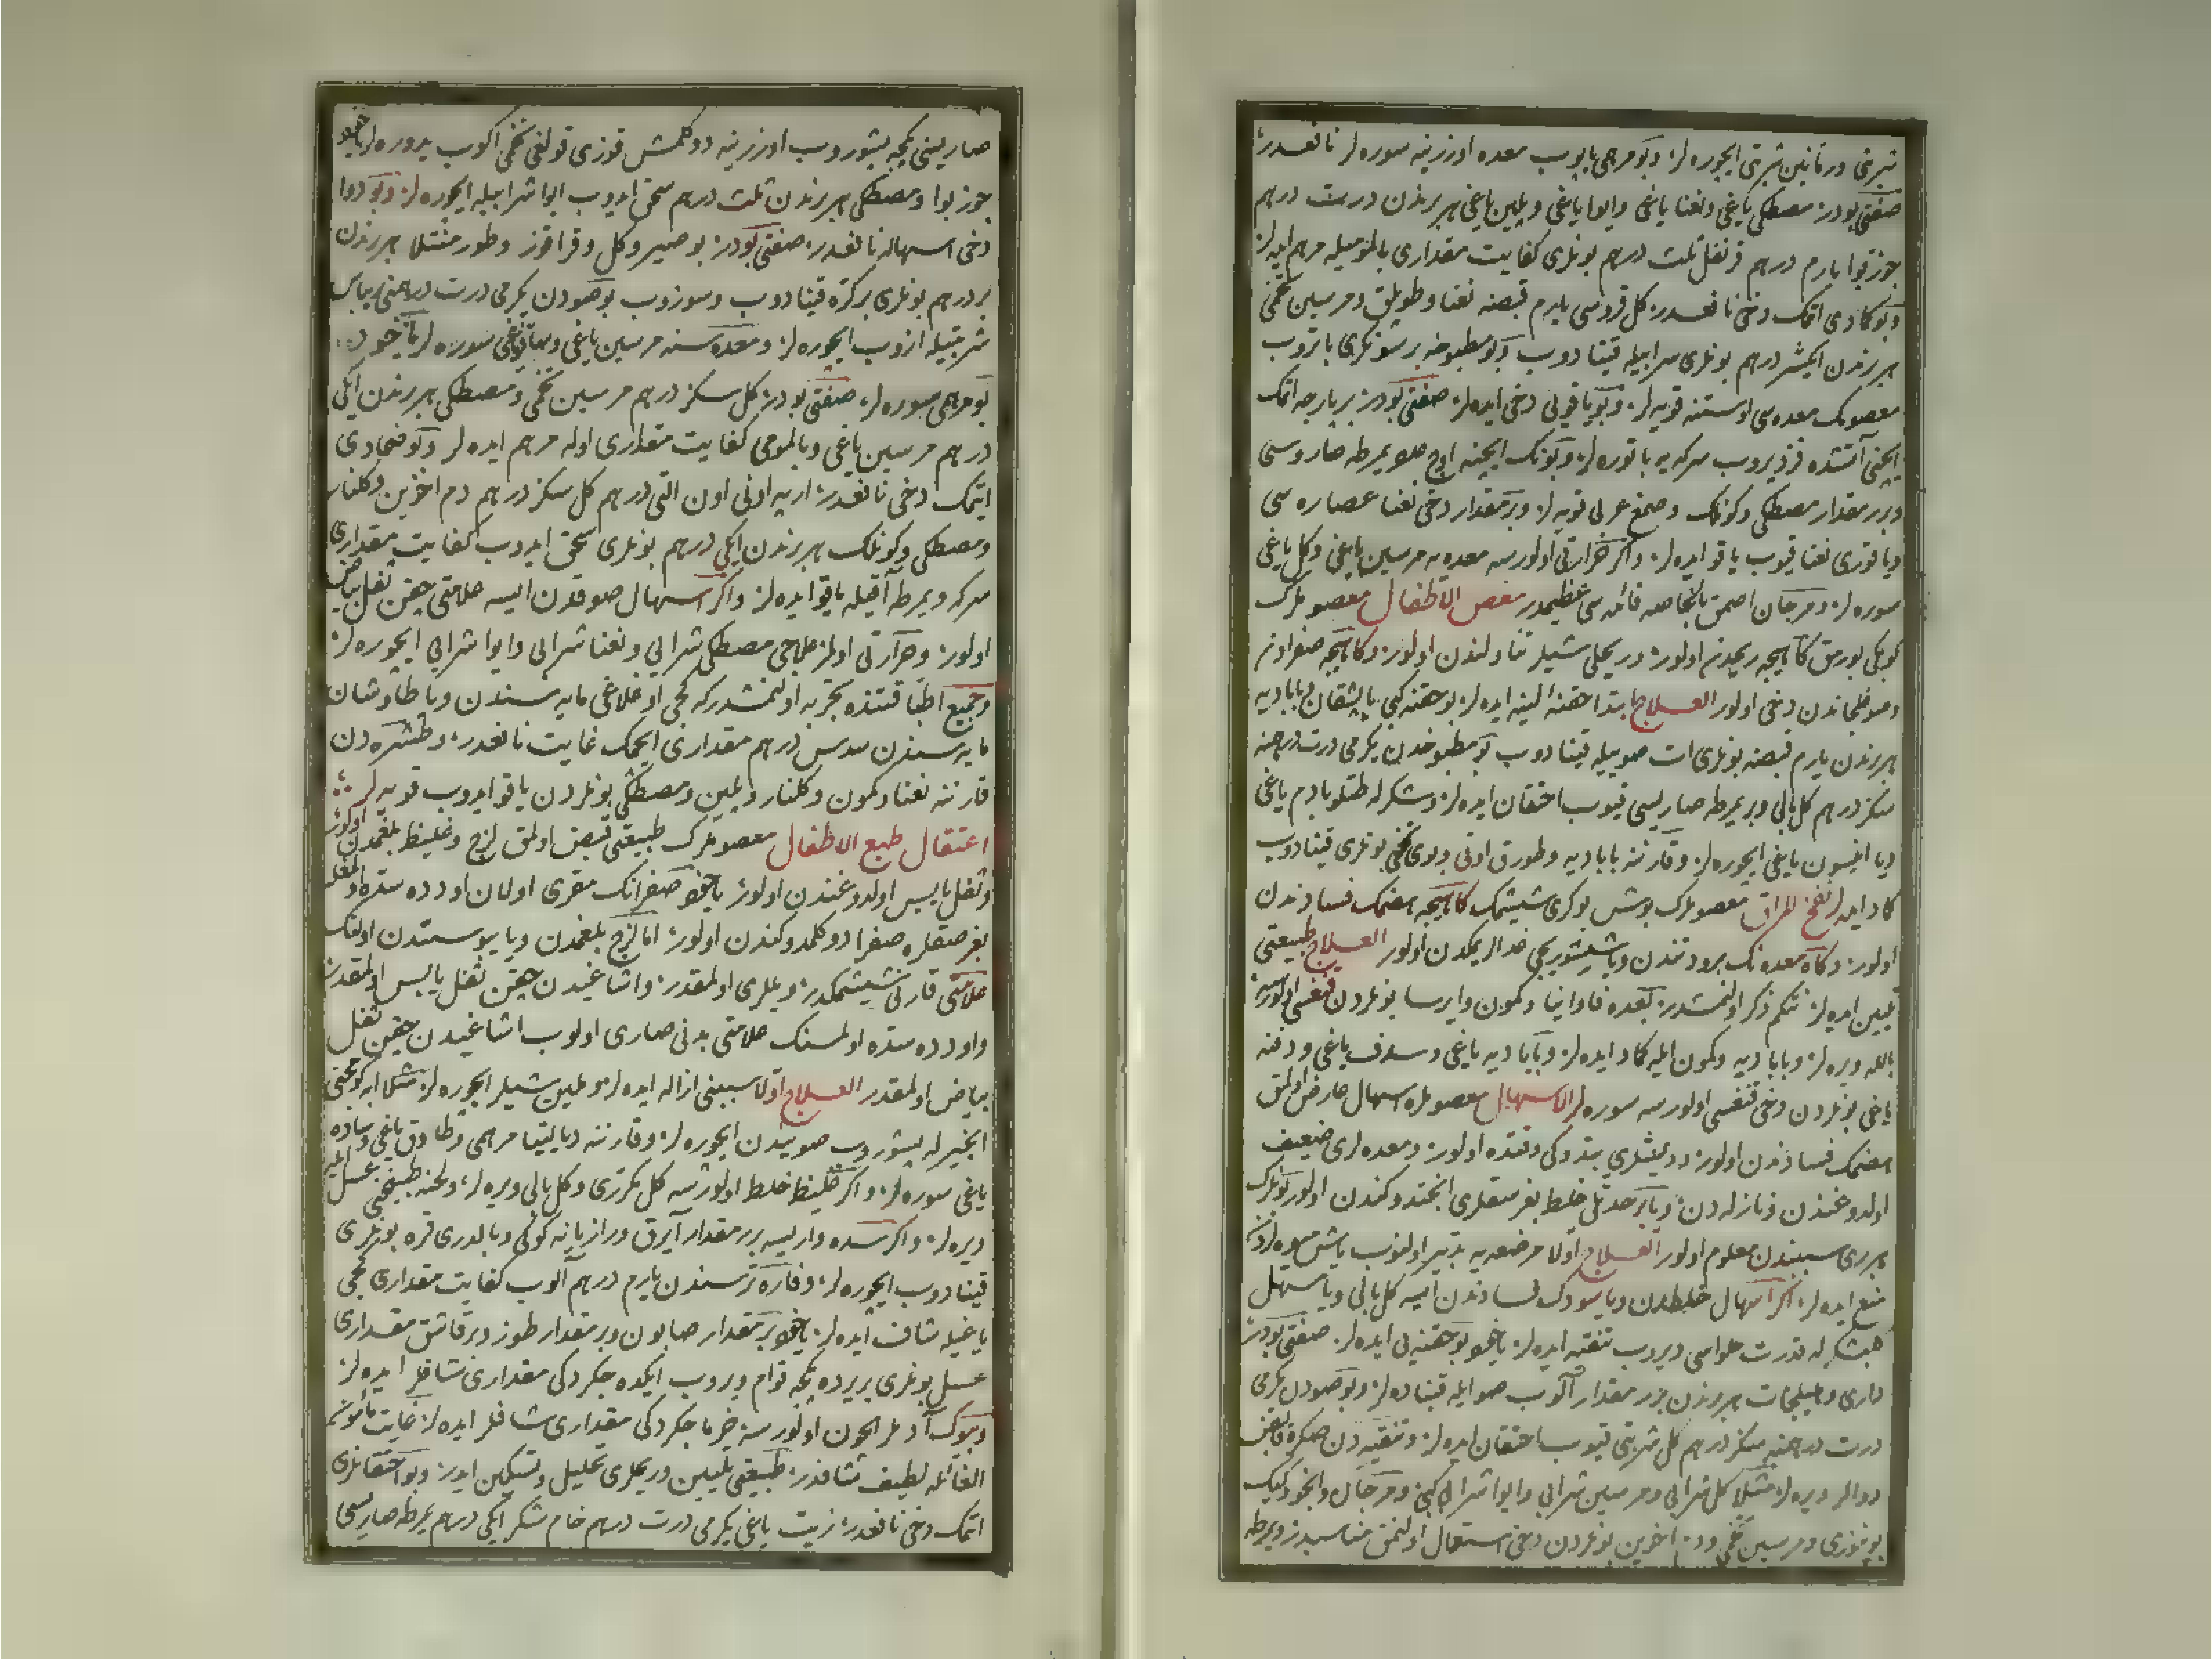 شربتی ایچوره لر و بو مرهمی یاپوب معده اوزرینه سوره لر نافعدر
صفتی بودر مصطکی یاغی و نعنا یاغی و ایوا یاغی و یلین یاغی هر برندن درت درهم
جوز بوا یارم درهم قرنفل ثلث درهم بونلری کفایت مقداری بالمومیله مرهم ایده لر
و بو کمادی اتمک دخی نافعدر کل قروسی یارم قبضه نعنا و مرسین تخمی
هر برندن ایکیشر درهم بونلری شرابیله قینادوب بو مطبوخه بر سونکری باتروب
معصومک معده سی اوستنه قویه لر و بو یاقویی دخی ایده لر صفتی بودر بر پارچه اتمک
ایچنی آتشده قزدیروب سرکه یه باتوره لر و بونک ایچنه اوچ یمرطه صاروسی
و برر مقدار مصطکی و کونلک و صمغ عربی قویه لر و بر مقدار دخی نعنا عصاره سی
و یا قوری نعنا قیوب یاقو ایده لر و اکر حرارتی اولورسه معده یه مرسین یاغی و کل یاغی
سوره لر و مرجان اصمق بالخاصه فائده سی عظیمدر مغص الاطفال معصوملرک
کوبکی بورمق کاهیجه ریحدن اولور و ریحلی شیلر تناولندن اولور و کاهیجه صفرادن
و صوغلجاندن دخی اولور العلاج ابتدا حقنه لینه ایده لر بو حقنه کبی پاپشقان و بابادیه
هر برندن یارم قبضه بونلری ات صوییله قینادوب بو مطبوخدن یکرمی درت درهمنه
سکز درهم کل بالی و بر یمرطه صاریسی قیوب احتقان ایده لر و شکرله طتلو بادم یاغی
و یا انیسون یاغی ایچوره لر و قارننه بابادیه و طورق اوتی و بوی تخمی بونلری قینادوب
کماد ایده لر نفخ المراق معصوملرک بوش بوکری شیشمک کاهیجه هضمک فسادندن
اولور و کاه معده نک برودتندن و یا شیشوریجی غدالر یمکدن اولور العلاج طبیعتی
تلیین ایده لر نتکم ذکر اولنمشدر بعده فاوانیا و کمون و ایرسا بونلردن قنغیسی اولورسه
بالله ویره لر و بابادیه و کمون ایله کماد ایده لر و بابادیه یاغی و سداب یاغی و دفنه
یاغی بونلردن دخی قنغیسی اولورسه سوره لر الاسهال معصوملره اسهال عارض اولمق
هضمک فسادندن اولور و دیشلری بتدوکی وقتده اولور و معده لری ضعیف
اولدوغندن و نازله دن و یا بر حدتلی خلط بغرسقلری انجتدوکندن اولور بونلرک
هر بری سببندن معلوم اولور العلاج اولا مرضعه یه تدبیر اولنوب یاش میوه لردن
منع ایده لر اکر اسهال خلطدن و یا سودک فسادندن ایسه کل بالی و یا مسهل
کمشکر له قدرت حلواسی ویروب تنقیه ایده لر یاخود بو حقنه یی ایده لر صفتی بودر
داری و هلیجات هر برندن برر مقدار آلوب صو ایله قیناده لر و بو صودن یکرمی
درت درهمنه سکز درهم کل شربتی قیوب احتقان ایده لر و تنقیه دن صکره قابض
دوالر ویره لر مثلا کل شرابی و مرسین شرابی و ایوا شرابی کبی و مرجان و انجو و کییک
بوینوزی و مرسین تخمی و دم اخوین بونلردن دخی استعمال اولنمق مناسبدر و یمرطه
صاریسنی کیجه بشوروب اوزرینه دوکلمش قوزی قولاغی تخمی اکوب یدوره لر یاخود
جوز بوا و مصطکی هر برندن ثلث درهم سحق ایدوب ایوا شرابیله ایچوره لر و بو دوا
دخی اسهاله نافعدر صفتی بودر و کل و قراقوز و هر برندن
بر درهم بونلری بر کره قینادوب و سوزوب بو صودن یکرمی درت درهمنی ریباس
شربتیله ازوب ایچوره لر و معده سنه مرسین یاغی و یاغی سوره لر یاخود
بو مرهمی سوره لر صفتی بودر کل سکز درهم مرسین تخمی و مصطکی هر برندن ایکی
درهم مرسین یاغی و بالمومی کفایت مقداری اوله مرهم ایده لر و بو ضمادی
اتمک دخی نافعدر ارپه اونی اون التی درهم کل سکز درهم دم اخوین و کلنار
و مصطکی و کونلک هر برندن ایکی درهم بونلری سحق ایدوب کفایت مقداری
سرکه و یمرطه آقیله یاقو ایده لر و اکر اسهال صوقدن ایسه علامتی چقن ثفل بیاض
اولور و حرارتی اولمز علاجی مصطکی شرابی و نعنا شرابی و ایوا شرابی ایچوره لر
و جمیع اطبا قتنده تجربه اولنمشدر که کجی اوغلاغی مایه سندن و یا طاوشان
مایه سندن سدس درهم مقداری ایچمک غایت نافعدر و طشره دن
قارننه نعنا و کمون و کلنار و یلین و مصطکی بونلردن یاقو ایدوب قویه لر
اعتقال طبع الاطفال معصوملرک طبیعتی قبض اولمق لزج و غلیظ بلغمدن اولور
و ثفل یابس اولدوغندن اولور یاخود صفرانک مقری اولان اودده سده اولمغله
بغرصقلره صفرا دوکلمدوکندن اولور اما لزج بلغمدن و یا یبوستدن اولمنک
علامتی قارنی شیشمکدر و یللری اولمقدر و اشاغیدن چقن ثفل یابس اولمقدر
و اودده سده اولمسنک علامتی بدنی صاری اولوب اشاغیدن چقن ثفل
بیاض اولمقدر العلاج اولا سببنی ازاله ایده لر و ملین شیلر ایچوره لر مثلا ابه کومجنی
انجیر له بشوروب صویندن ایچوره لر و قارننه دیالتیا مرهمی و طاوق یاغی و ساده
یاغی سوره لر و اکر غلیظ خلط اولورسه کل شکری و کل بالی ویره لر و لحنه طبیخنی عسل ایله
ویره لر و اکر سده وار ایسه برر مقدار آیرق و رازیانه کوکی و بالدری قره بونلری
قینادوب ایچوره لر و فاره ترسندن یارم درهم آلوب کفایت مقداری کجی
یاغیله شاف ایده لر یاخود بر مقدار صابون و بر مقدار طوز و بر قاشق مقداری
عسل بونلری بر یرده پکجه قوام ویروب ایکده چکردکی مقداری شافلر ایده لر
و بیوک آدملر ایچون اولورسه خرما چکردکی مقداری شافلر ایده لر غایت مأمون
الغائله لطیف شافدر طبیعتی تلیین و ریحلری تحلیل و تسکین ایدر و بو احتقانلری
اتمک دخی نافعدر زیت یاغی یکرمی درت درهم خام شکر ایکی درهم یمرطه صاریسی